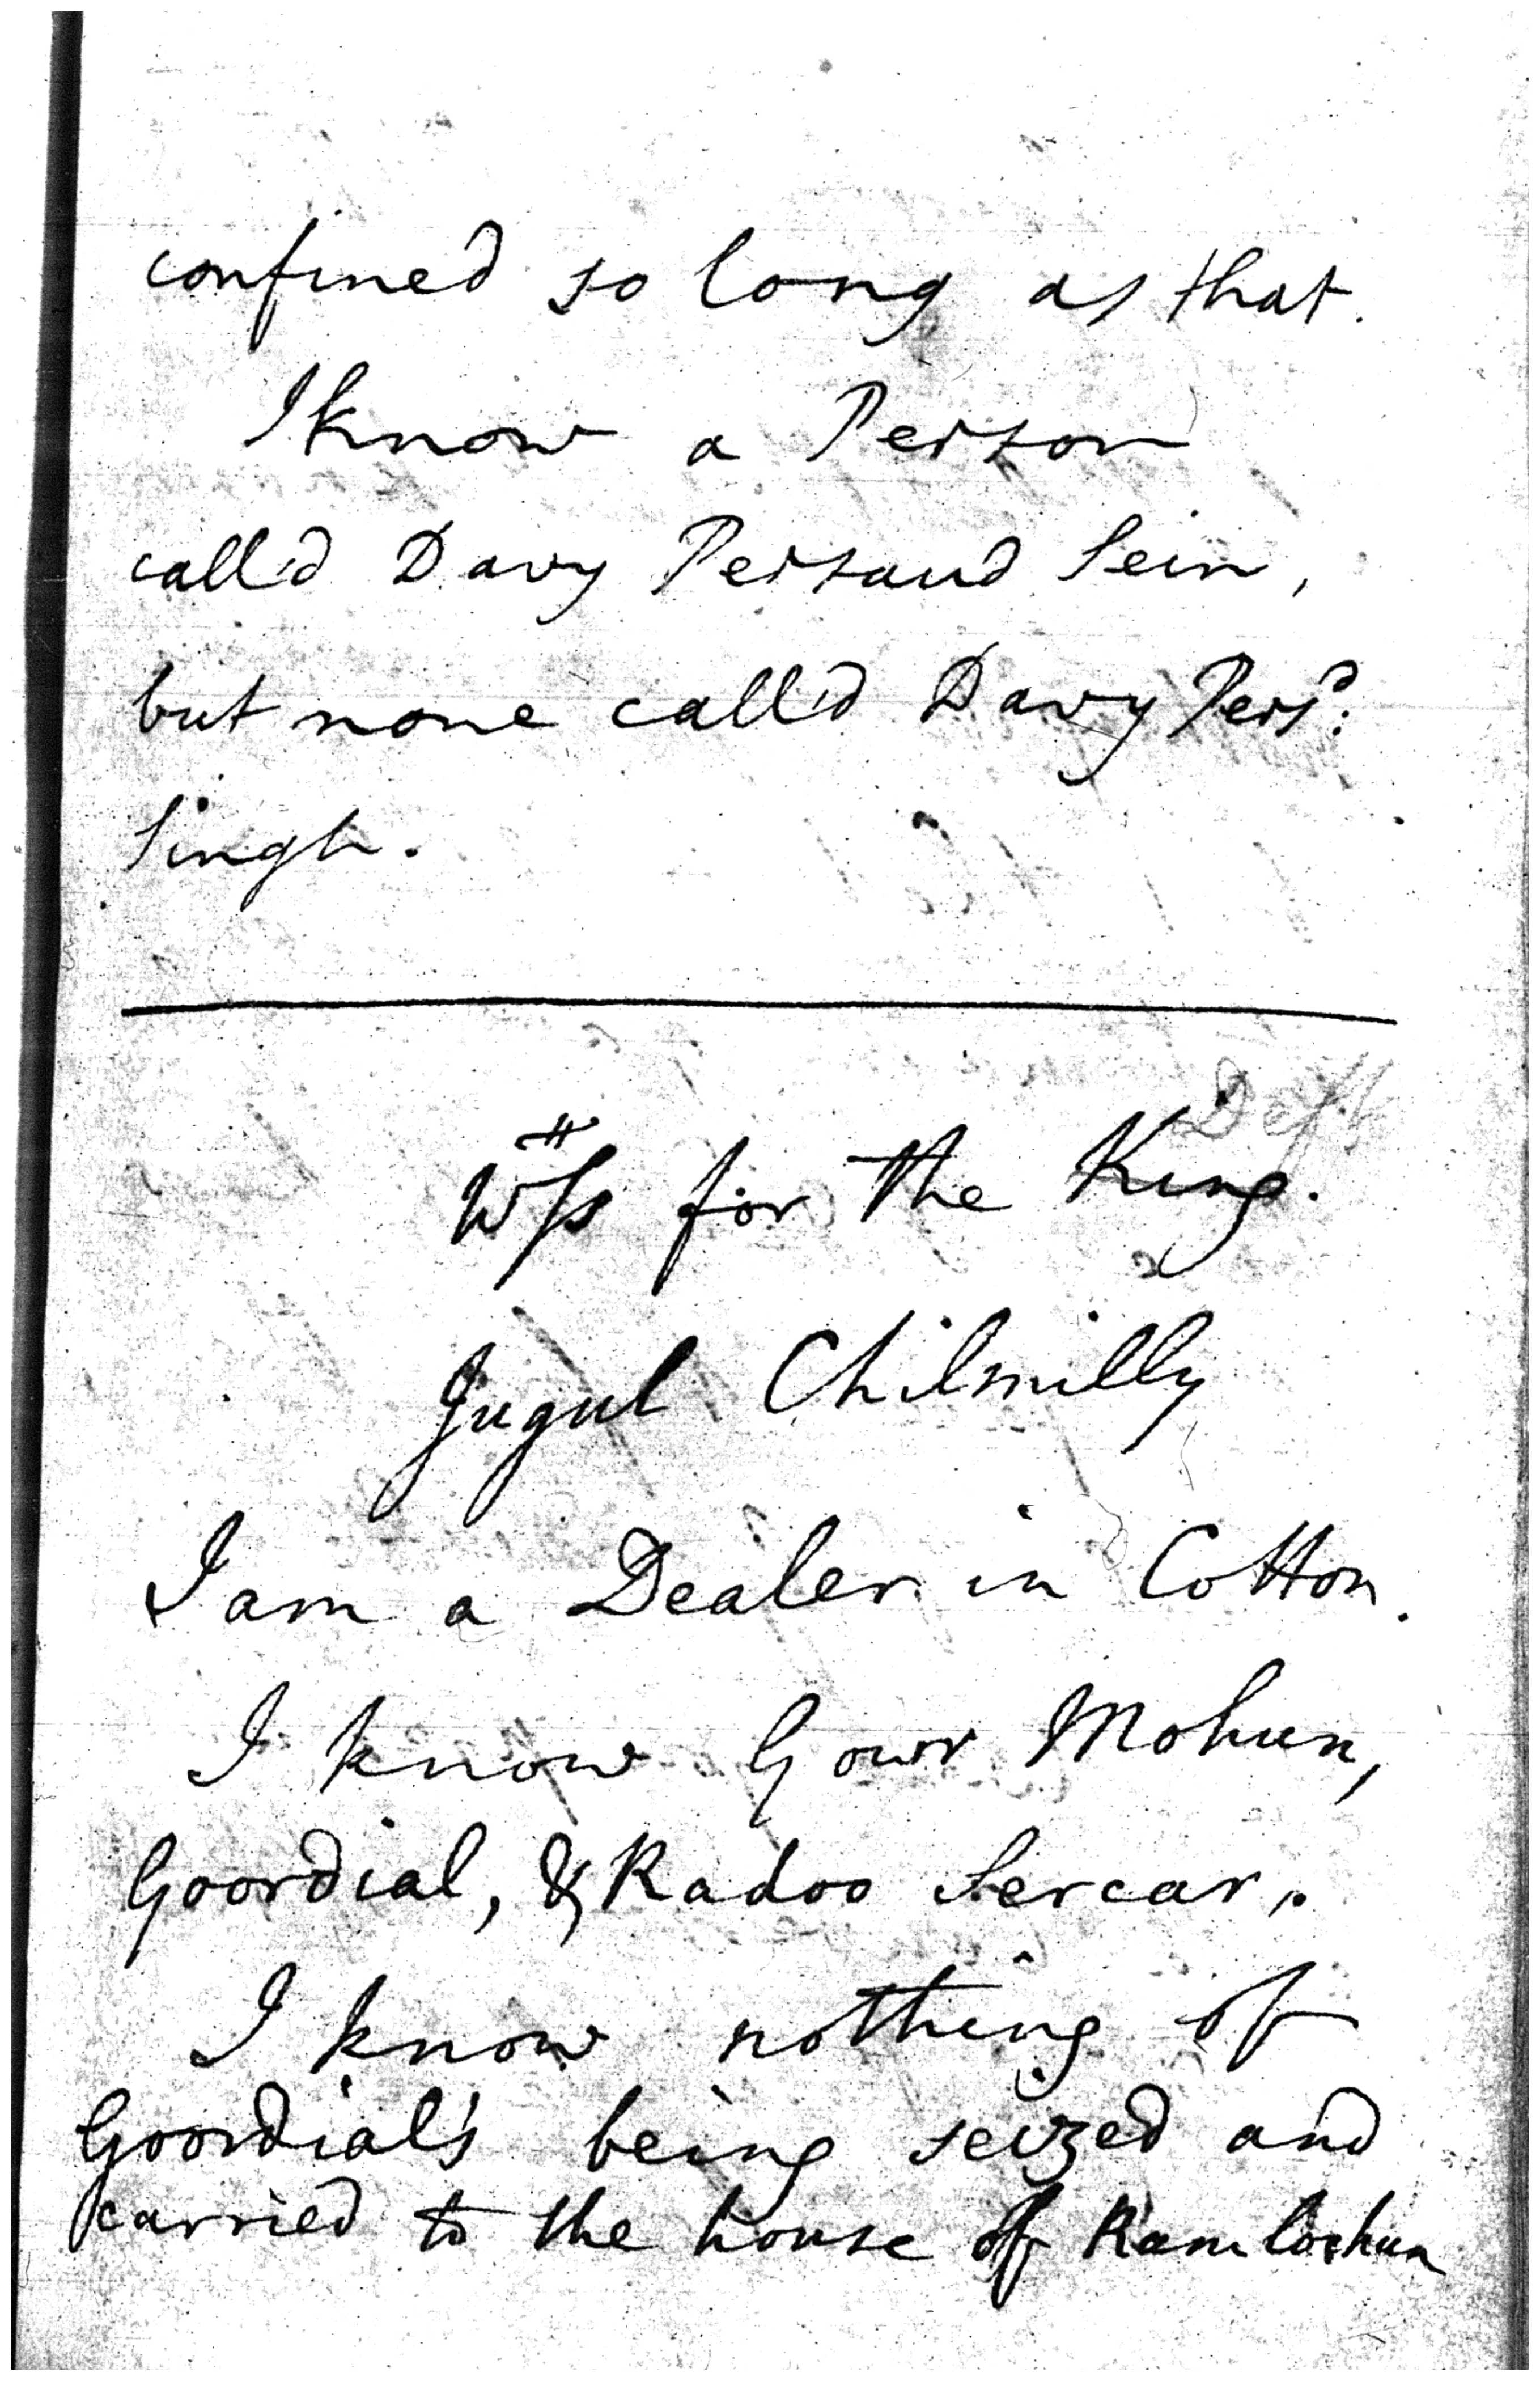 confined so long as that.
I know a Person
call'd Davy Persaud Sein,
but none call'd Davy Pers^d:
Singh.
Deft
W^tss for the King.
Jugul Chilmilly
I am a Dealer in Cotton.
I know Gowr Mohun,
Goordial, & Radoo Sercar.
I know nothing of
Goordial's being seized and
carried to the house of Ramlochun